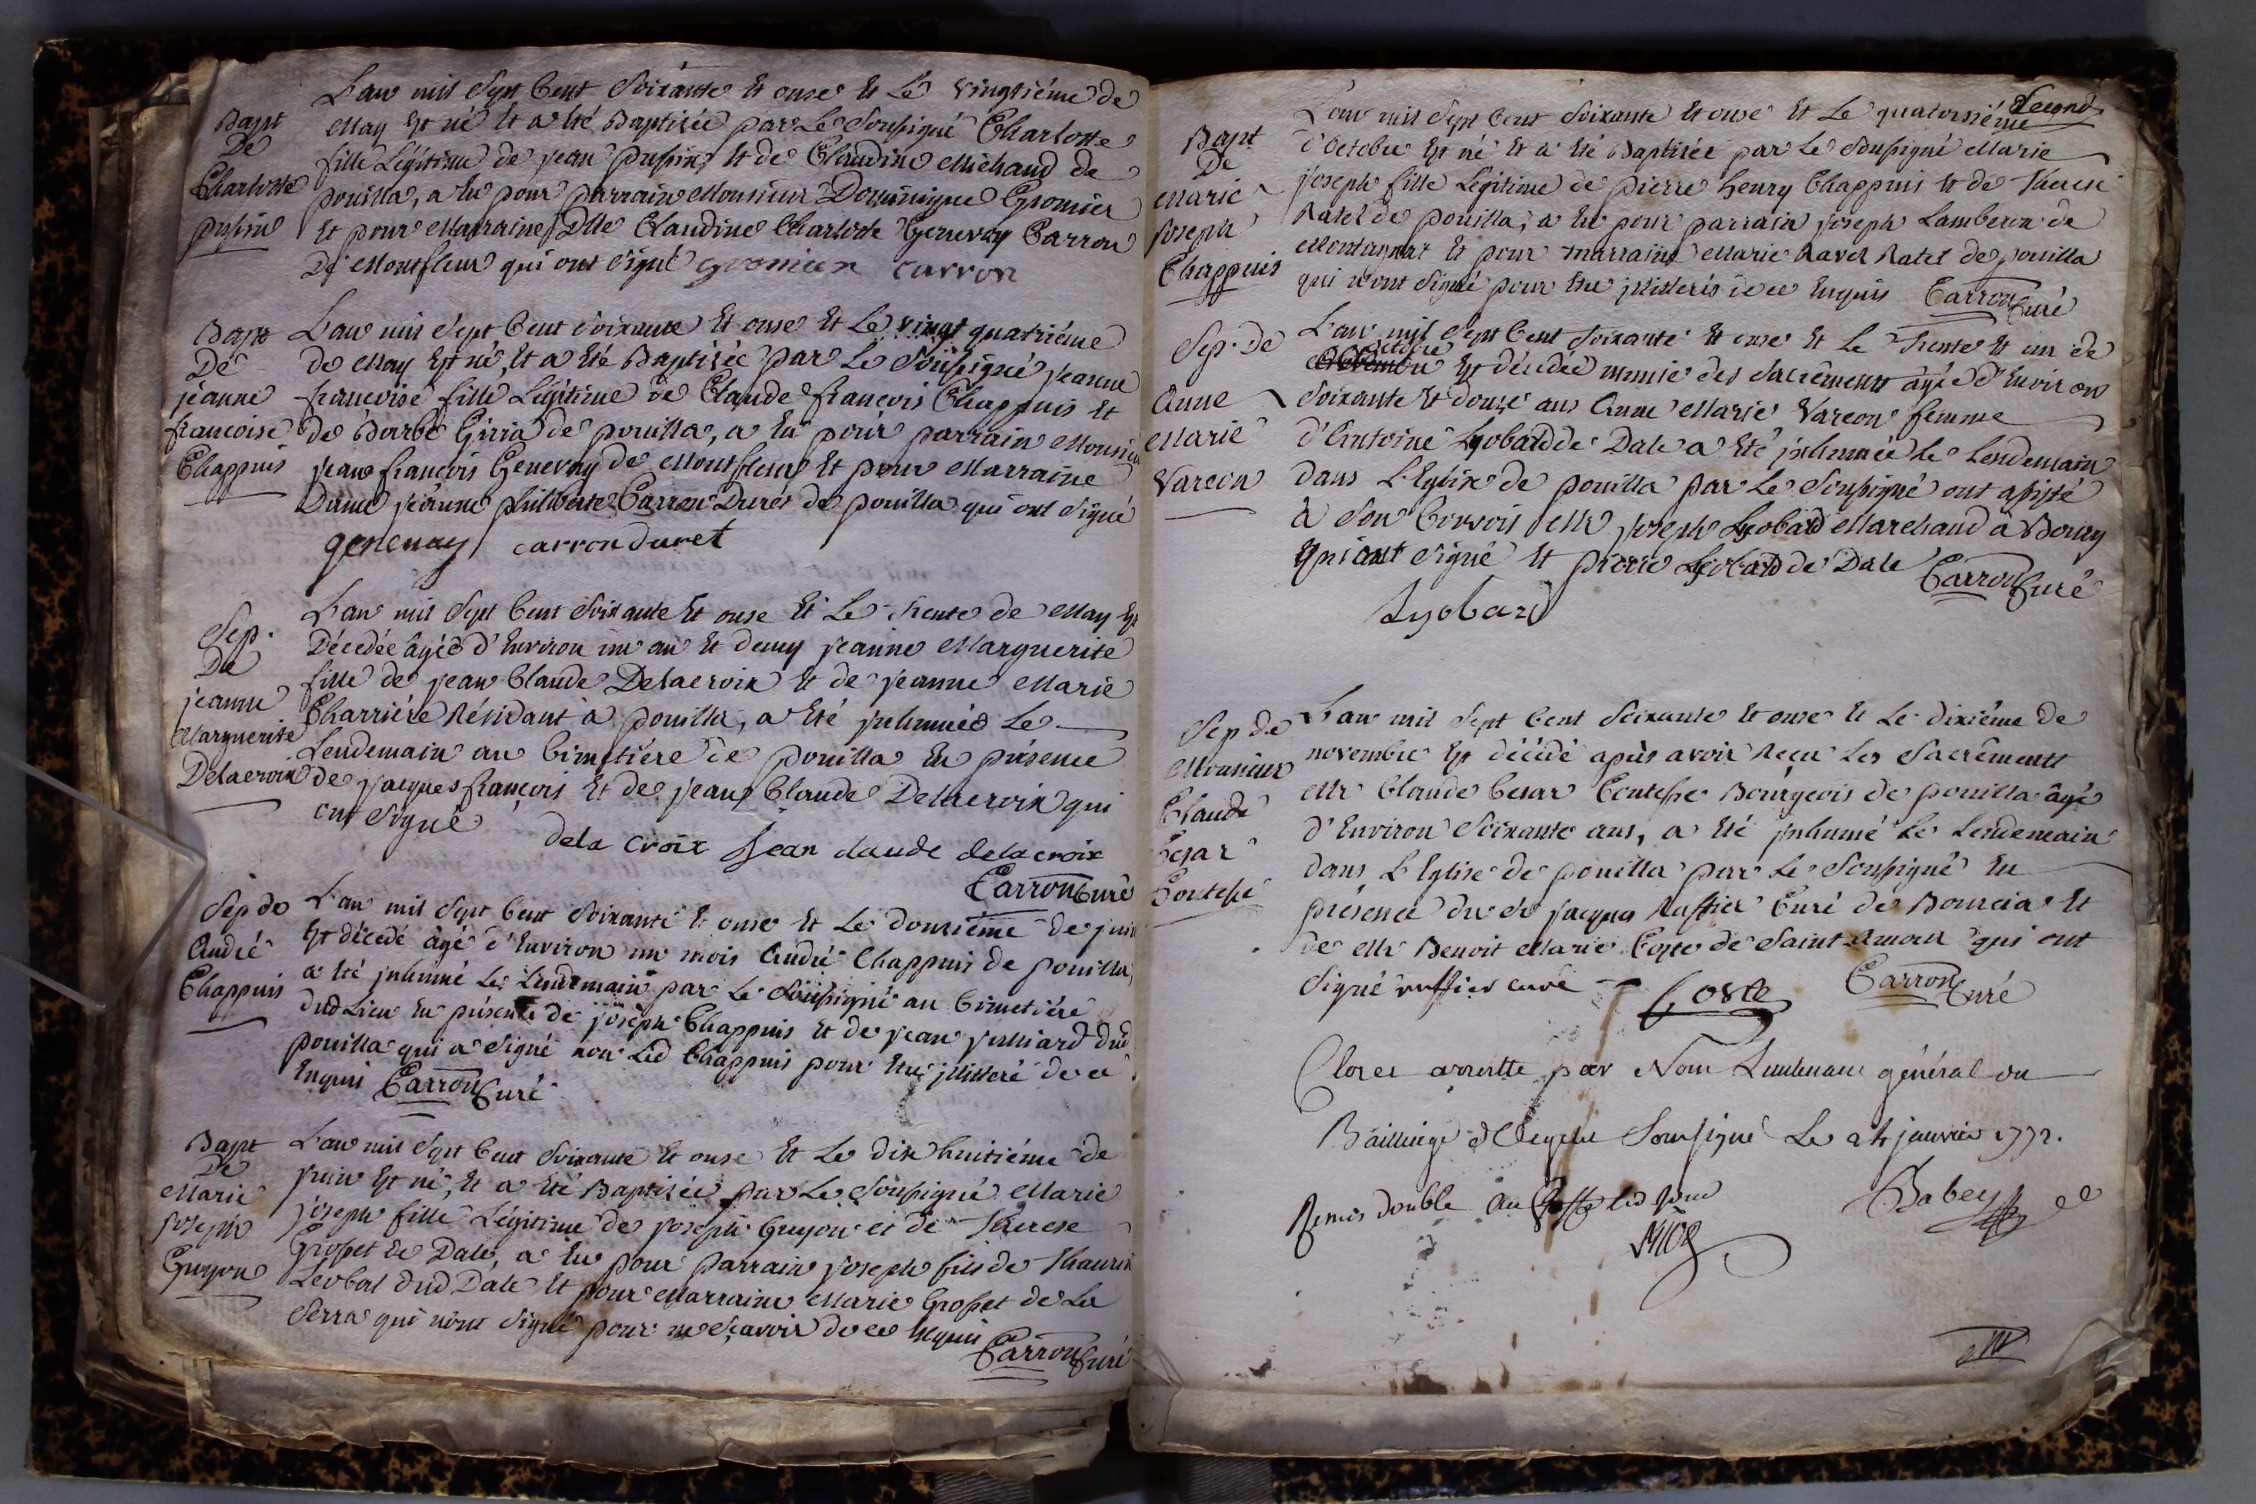 L'an mil sept cent soixante et onse et le vingtiéme de
Bapt
De
Charlotte
pussin
May est né et a été Baptisée par le soussigné Charlotte
fille Légitime de jean pussin et de Claudine Michaud de
pouilla, a eu pour parrain Monsieur Dominique Gromier
et pour Marraine Dlle Claudine Charlotte Genevay Carron
De Montfleur qui ont signé gromier carron
Bapt
De
jeanne
francoise
Chappuis
L'an mil sept cent soixante et onse et le vingt quatriéme
de May est né, et a été Baptisée par le soussigné jeanne
francoise fille Légitime de Claude francois Chappuis et
de Barbe Girria de pouilla, a eu pour parrain Monsieur
jean francois Genevay de Montfleur et pour Marraine
Dame jeanne philberte Carron Duret de pouilla qui ont signé
genevay carron duret
Sep.
De
jeanne
Marguerite
Delacroix
L'an mil sept cent soixante et onse et le trente de May est
Décedée âgée d'environ un an et demy jeanne Marguerite
fille de jean Claude Delacroix et de jeanne Marie
Charriére Résidant à pouilla, a été inhumée le
Lendemain au cimetiére de pouilla en présence
de jacques françois et de jean Claude Delacroix qui
ont signé
dela croix jean claude delacroix
Carron Curé
Sep de
André
Chappuis
L'an mil sept cent soixante et onse et le douziéme de juin
est décedé âgé d'environ un mois André Chappuis de pouilla
a été inhumé le lendemain par le soussigné au cimetiére
dud lieu en présence de joseph Chappuis et de jean julliard dud
pouilla qui a signé non led Chappuis pour etre illiteré de ce
enquis Carron Curé
Bapt
De
Marie
joseph
Guyon
L'an mil sept cent soixante et onse et le dix huitiéme de
juin est né, et a été Baptisée par le soussigné Marie
joseph fille Légitime de joseph Guyon et de Therese
Grosset de Dale, a eu pour parrain joseph fils de Thaurin
Leobal dud Dale et pour Marraine Marie Grosset de La
Serra qui n'ont signé pour ne sçavoir de ce enquis
Carron Curé
Second
Bapt
De
Marie
joseph
Chappuis
L'an mil sept cent soixante et onse et le quatorsiéme
d'Octobre est né et a été Baptisée par le soussigné Marie
joseph fille Légitime de pierre henry Chappuis et de Therese
Ratel de pouilla, a eu pour parrain joseph Lamberon de
Montarmat et pour marraine Marie Ravel Ratel de pouilla
qui n'ont signé pour etre illiterés de ce enquis Carron Curé
Sep. de
Anne
Marie
Vareon
L'an mil sept cent soixante et onse et le trente et un de
octobre est décédée munie des sacréments âgée d'environ
soixante et douze ans Anne Marie Vareon femme
d'Antoine Lyobard de Dale a été inhumée le lendemain
dans l'Eglise de pouilla par le soussigné ont assisté
à son convois Mr joseph Lyobard Marchand à Bourg
qui ont signé et pierre Lyobard de Dale Carron Curé
Lyobard
Sep de
Monsieur
Claude
Cesar
Contesse
L'an mil sept cent soixante et onse et le dixiéme de
novembre est décédé après avoir reçu les sacréments
Mr Claude Cesar Contesse Bourgeois de pouilla âgé
d'environ soixante ans, a été inhumé le lendemain
dans l'Eglise de pouilla par le soussigné en
présence du sr jacques Ruffier Curé de Bourcia et
de Mr Benoit Marie Coste de Saint Amour qui ont
signé ruffier curé Coste Carron Curé
Clos et arretté par Nous Lieutenant général au
Bailliage d'Orgelet soussigné Le 24 janvier 1772.
Remis double au Greffe led jour
Babey